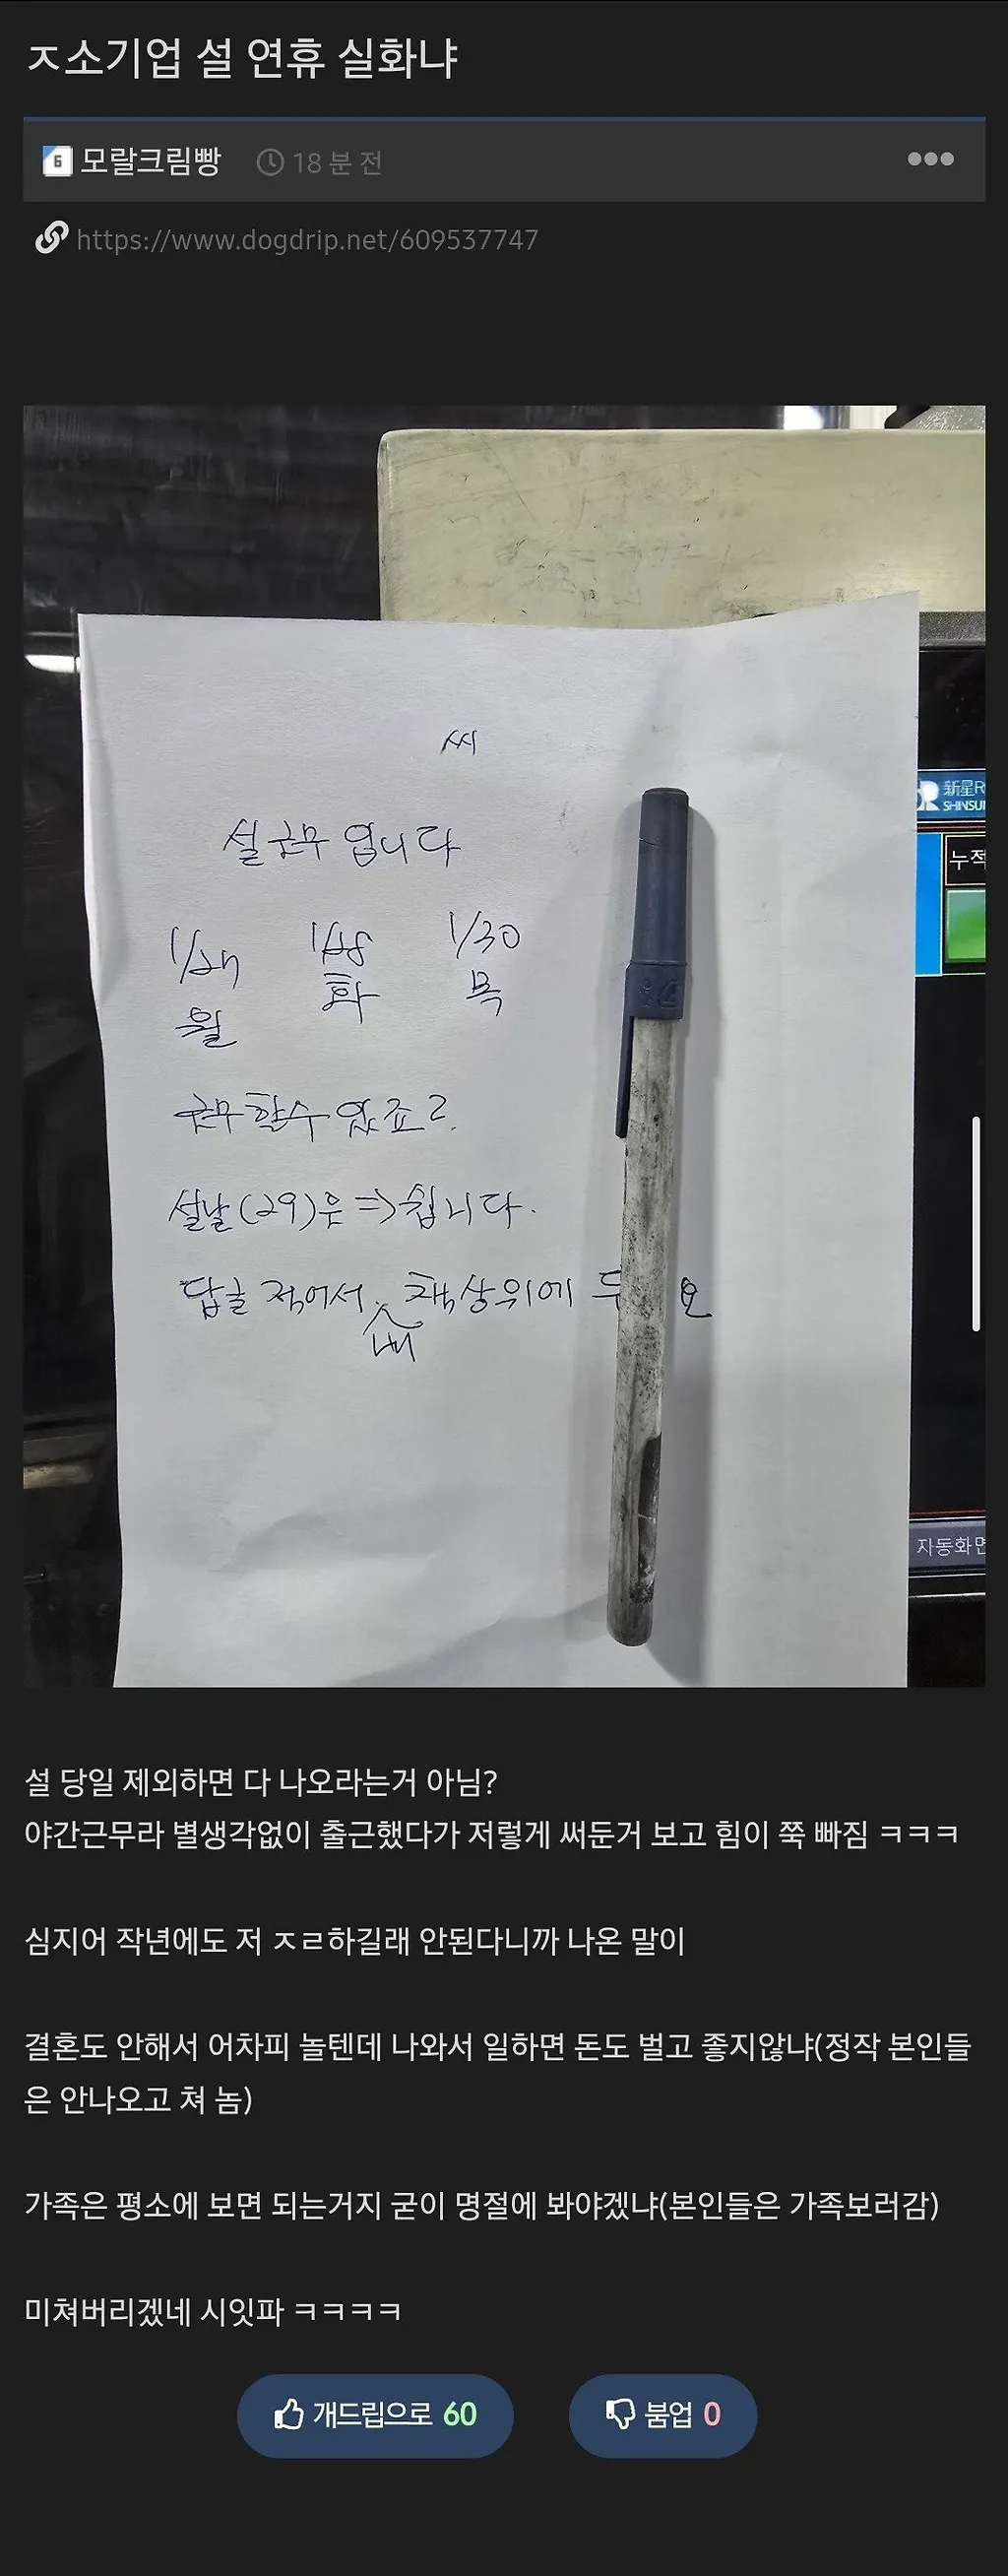 ㅈ소기업 설 연휴 실화냐
6 모랄크림빵 18 분 전
https://www.dogdrip.net/609537747
씨
설 근무 입니다
1/27 1/28 1/30
월 화 목
근무 할 수 있죠?
설날(29)은 => 쉽니다.
답글 적어서 내 책상위에 두 요
新星
SHINSU
누적
자동화면
설 당일 제외하면 다 나오라는거 아님?
야간근무라 별생각없이 출근했다가 저렇게 써둔거 보고 힘이 쭉 빠짐 ㅋㅋㅋ
심지어 작년에도 저 ㅈㄹ하길래 안된다니까 나온 말이
결혼도 안해서 어차피 놀텐데 나와서 일하면 돈도 벌고 좋지않냐(정작 본인들
은 안나오고 쳐 놈)
가족은 평소에 보면 되는거지 굳이 명절에 봐야겠냐(본인들은 가족보러감)
미쳐버리겠네 시잇파 ㅋㅋㅋㅋ
개드립으로 60 붐업 0